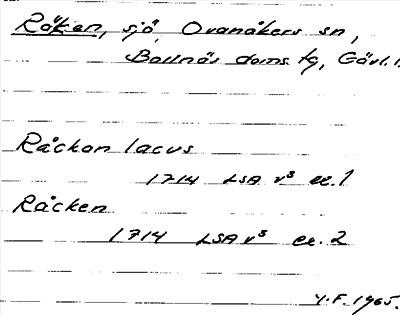 Råken, sjö, Ovanåkers sn,
Bollnäs doms. tg, Gävl. l.
Råckan lacus
1714 LSA v³ ex. 1
Råcken
1714 LSA v³ ex. 2
Y.F. 1965.